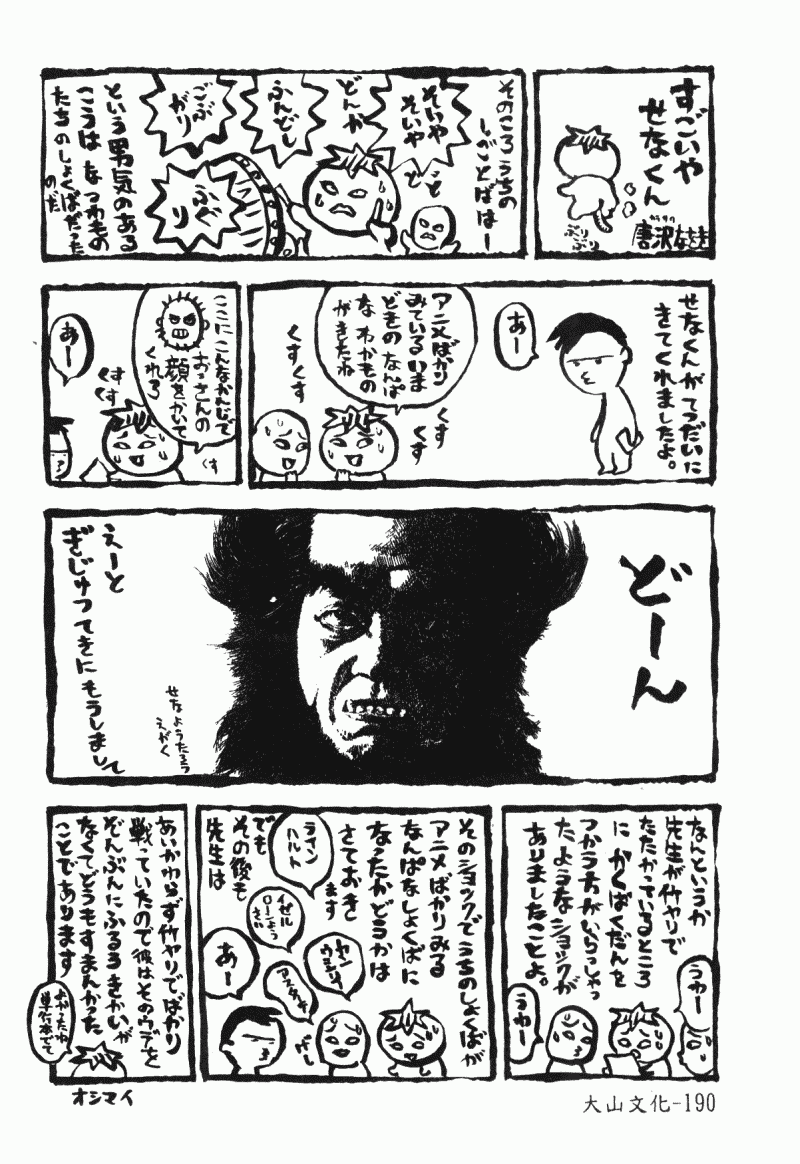 すごいや
せなくん
唐沢なをき
ぷりぷり
そのころうちの
しごとばはー
そいや
そいや
どんか
ふんどし
ごぶ
がり
ふぐ
り
という男気のある
こうは なつわもの
たちのしょくばだった
のだ
せなくんがてつだいに
きてくれましたよ。
あー
アニメばかり
みているいま
どきのなんぱ
なわかもの
がきたわ
くす
くす
くすくす
ここにこんなかんじで
おっさんの
顔をかいて
くれろ
くす
くす
くす
あー
どーん
せなようたろう
えがく
えーと
ぎじゅつてきにもうしまして
なんというか
先生が竹ヤリで
たたかっているところ
にかくばくだんを
つかう方がいらっしゃっ
たようなショックが
ありましたことよ。
うわー
うわー
そのショックでうちのしょくばが
アニメばかりみる
なんぱなしょくばに
なったかどうかは
さておき
ます
ライン
ハルト
イゼル
ローンよう
さい
ヤン
ウェンリー
アスターテ
あー
でも
その後も
先生は
あいかわらず竹ヤリでばかり
戦っていたので彼はそのウデを
ぞんぶんにふるうきかいが
なくてどうもすまんかった
ことであります
よかったね
単行本でて
オシマイ
大山文化-190